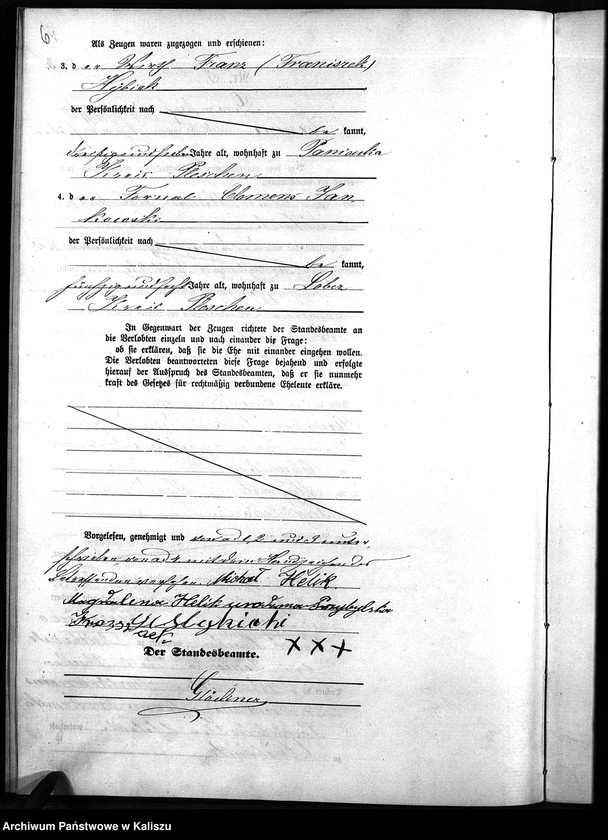 6
Als Zeugen waren zugezogen und erschienen:
3. der Wirth Franz (Franciszek)
der Persönlichkeit nach
bekannt,
Jahre alt, wohnhaft zu
Kreis Pleschen
4. der Fornal Clemens Jan
kowski
der Persönlichkeit nach
bekannt,
Jahre alt, wohnhaft zu
Kreis Pleschen
In Gegenwart der Zeugen richtete der Standesbeamte an
die Verlobten einzeln und nach einander die Frage:
ob sie erklären, daß sie die Ehe mit einander eingehen wollen.
Die Verlobten beantworteten diese Frage bejahend und erfolgte
hierauf der Ausspruch des Standesbeamten, daß er sie nunmehr
kraft des Gesetzes für rechtmäßig verbundene Eheleute erkläre.
Vorgelesen, genehmigt und von ad 1, 2 und 3 unter-
schrieben, von ad 4 mit dem Handzeichen
versehen Michał Helik
Magdalena Helik urodzona Przybylska
Der Standesbeamte. XXX
Archiwum Państwowe w Kaliszu